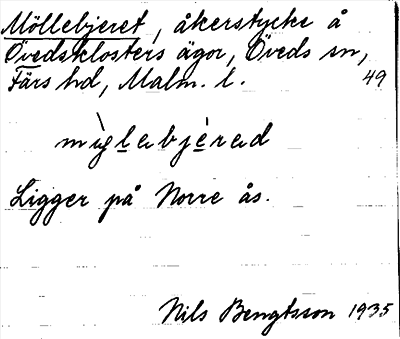 Möllebjeret, åkerstycke å
Övedsklosters ägor, Öveds sn,
Färs hd, Malm. l. 49
Ligger på Norre ås.
Nils Bengtsson 1935